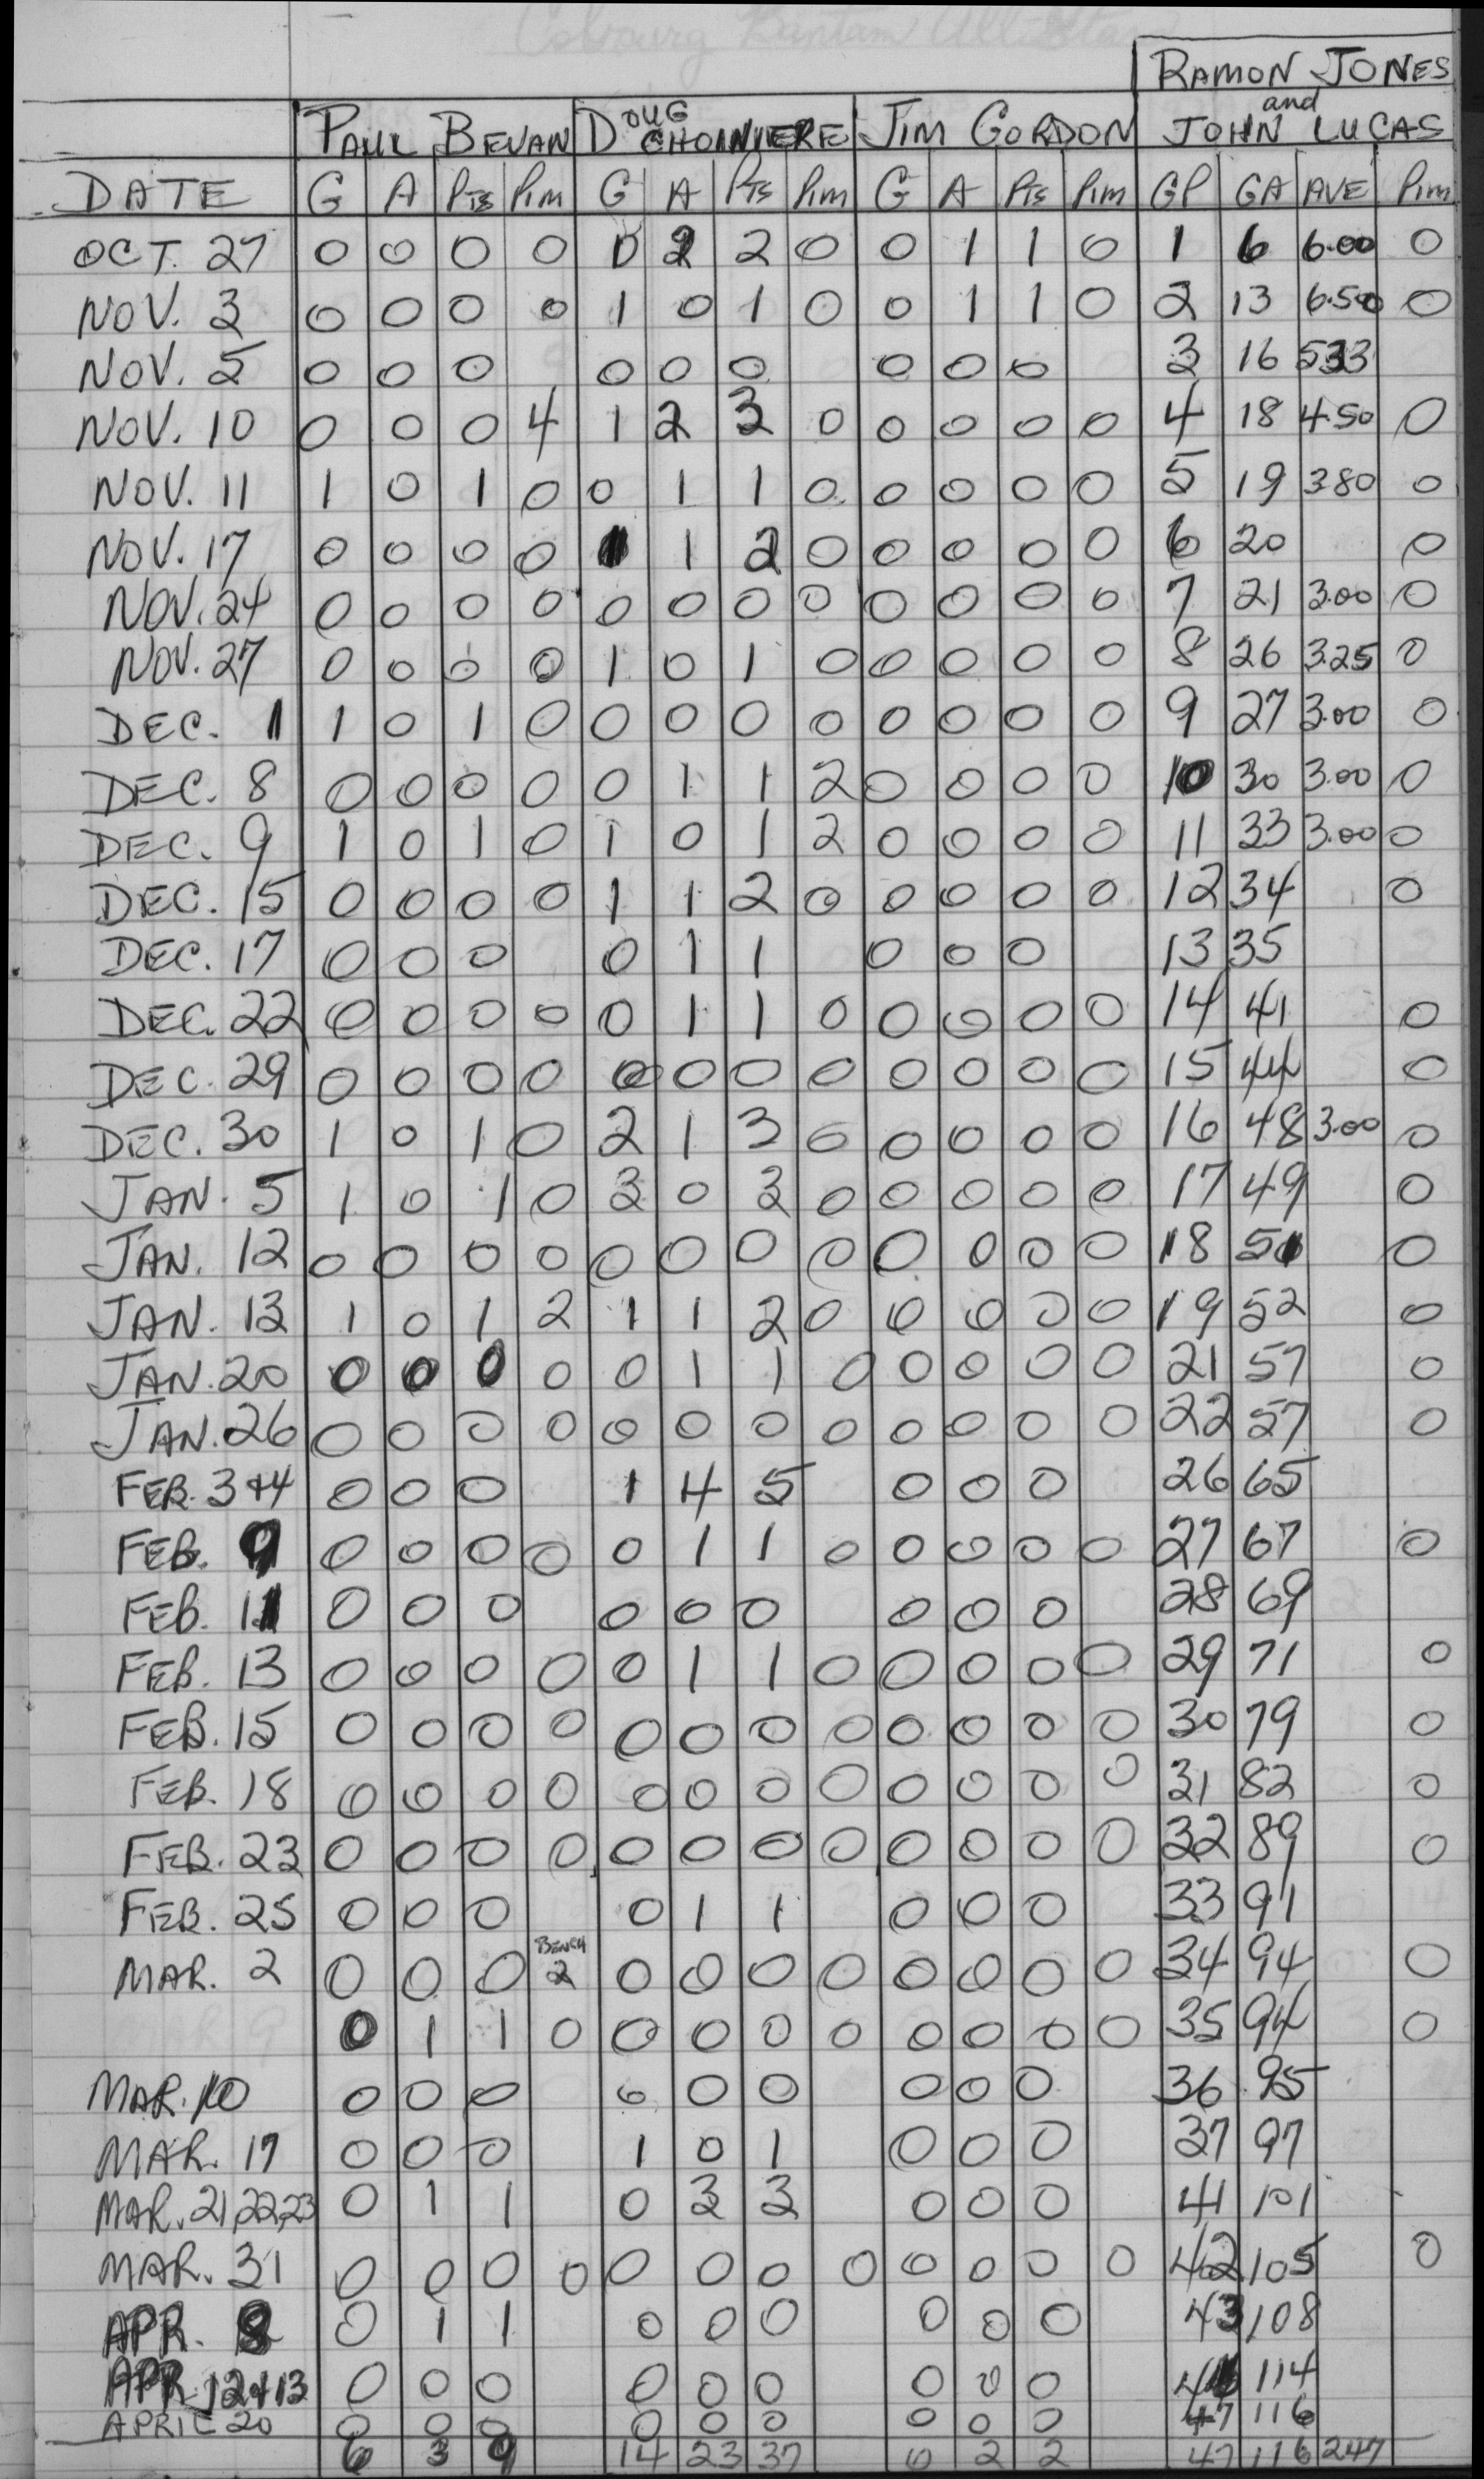 Cobourg Bantam All Star
RAMON JONES
and
PAUL BEVAN DOUG CHOINIERE JIM GORDON JOHN LUCAS
DATE G A Pts Pim G A Pts Pim G A Pts Pim GP GA AVE Pim
OCT. 27 0 0 0 0 0 2 2 0 0 1 1 0 1 6 6.00 0
NOV. 3 0 0 0 0 1 0 1 0 0 1 1 0 2 13 6.50 0
NOV. 5 0 0 0 0 0 0 0 0 0 3 16 533
NOV. 10 0 0 0 4 1 2 3 0 0 0 0 0 4 18 4.50 0
NOV. 11 1 0 1 0 0 1 1 0 0 0 0 0 5 19 380 0
NOV. 17 0 0 0 0 1 1 2 0 0 0 0 0 6 20 0
NOV. 24 0 0 0 0 0 0 0 0 0 0 0 0 7 21 3.00 0
NOV. 27 0 0 0 0 1 0 1 0 0 0 0 0 8 26 3.25 0
DEC. 1 1 0 1 0 0 0 0 0 0 0 0 0 9 27 3.00 0
DEC. 8 0 0 0 0 0 1 1 2 0 0 0 0 10 30 3.00 0
DEC. 9 1 0 1 0 1 0 1 2 0 0 0 0 11 33 3.00 0
DEC. 15 0 0 0 0 1 1 2 0 0 0 0 0 12 34 0
DEC. 17 0 0 0 0 1 1 0 0 0 13 35
DEC. 22 0 0 0 0 0 1 1 0 0 0 0 0 14 41 0
DEC. 29 0 0 0 0 0 0 0 0 0 0 0 0 15 44 0
DEC. 30 1 0 1 0 2 1 3 0 0 0 0 0 16 48 3.00 0
JAN. 5 1 0 1 0 3 0 3 0 0 0 0 0 17 49 0
JAN. 12 0 0 0 0 0 0 0 0 0 0 0 0 18 51 0
JAN. 13 1 0 1 2 1 1 2 0 0 0 0 0 19 52 0
JAN. 20 0 0 0 0 0 1 1 0 0 0 0 0 21 57 0
JAN. 26 0 0 0 0 0 0 0 0 0 0 0 0 22 57 0
FEB. 3+4 0 0 0 1 4 5 0 0 0 26 65
FEB. 9 0 0 0 0 0 1 1 0 0 0 0 0 27 67 0
FEB. 11 0 0 0 0 0 0 0 0 0 28 69
FEB. 13 0 0 0 0 0 1 1 0 0 0 0 0 29 71 0
FEB. 15 0 0 0 0 0 0 0 0 0 0 0 0 30 79 0
FEB. 18 0 0 0 0 0 0 0 0 0 0 0 0 31 82 0
FEB. 23 0 0 0 0 0 0 0 0 0 0 0 0 32 89 0
FEB. 25 0 0 0 0 1 1 0 0 0 33 91
BENCH
MAR. 2 0 0 0 2 0 0 0 0 0 0 0 0 34 94 0
0 1 1 0 0 0 0 0 0 0 0 0 35 94 0
MAR. 10 0 0 0 0 0 0 0 0 0 36 95
MAR. 17 0 0 0 1 0 1 0 0 0 37 97
MAR. 21,22,23 0 1 1 0 3 3 0 0 0 41 101
MAR. 31 0 0 0 0 0 0 0 0 0 0 0 0 42 105 0
APR. 8 0 1 1 0 0 0 0 0 0 43 108
APR. 12+13 0 0 0 0 0 0 0 0 0 46 114
APRIL 20 0 0 0 0 0 0 0 0 0 47 116
6 3 9 14 23 37 0 2 2 47 116 247